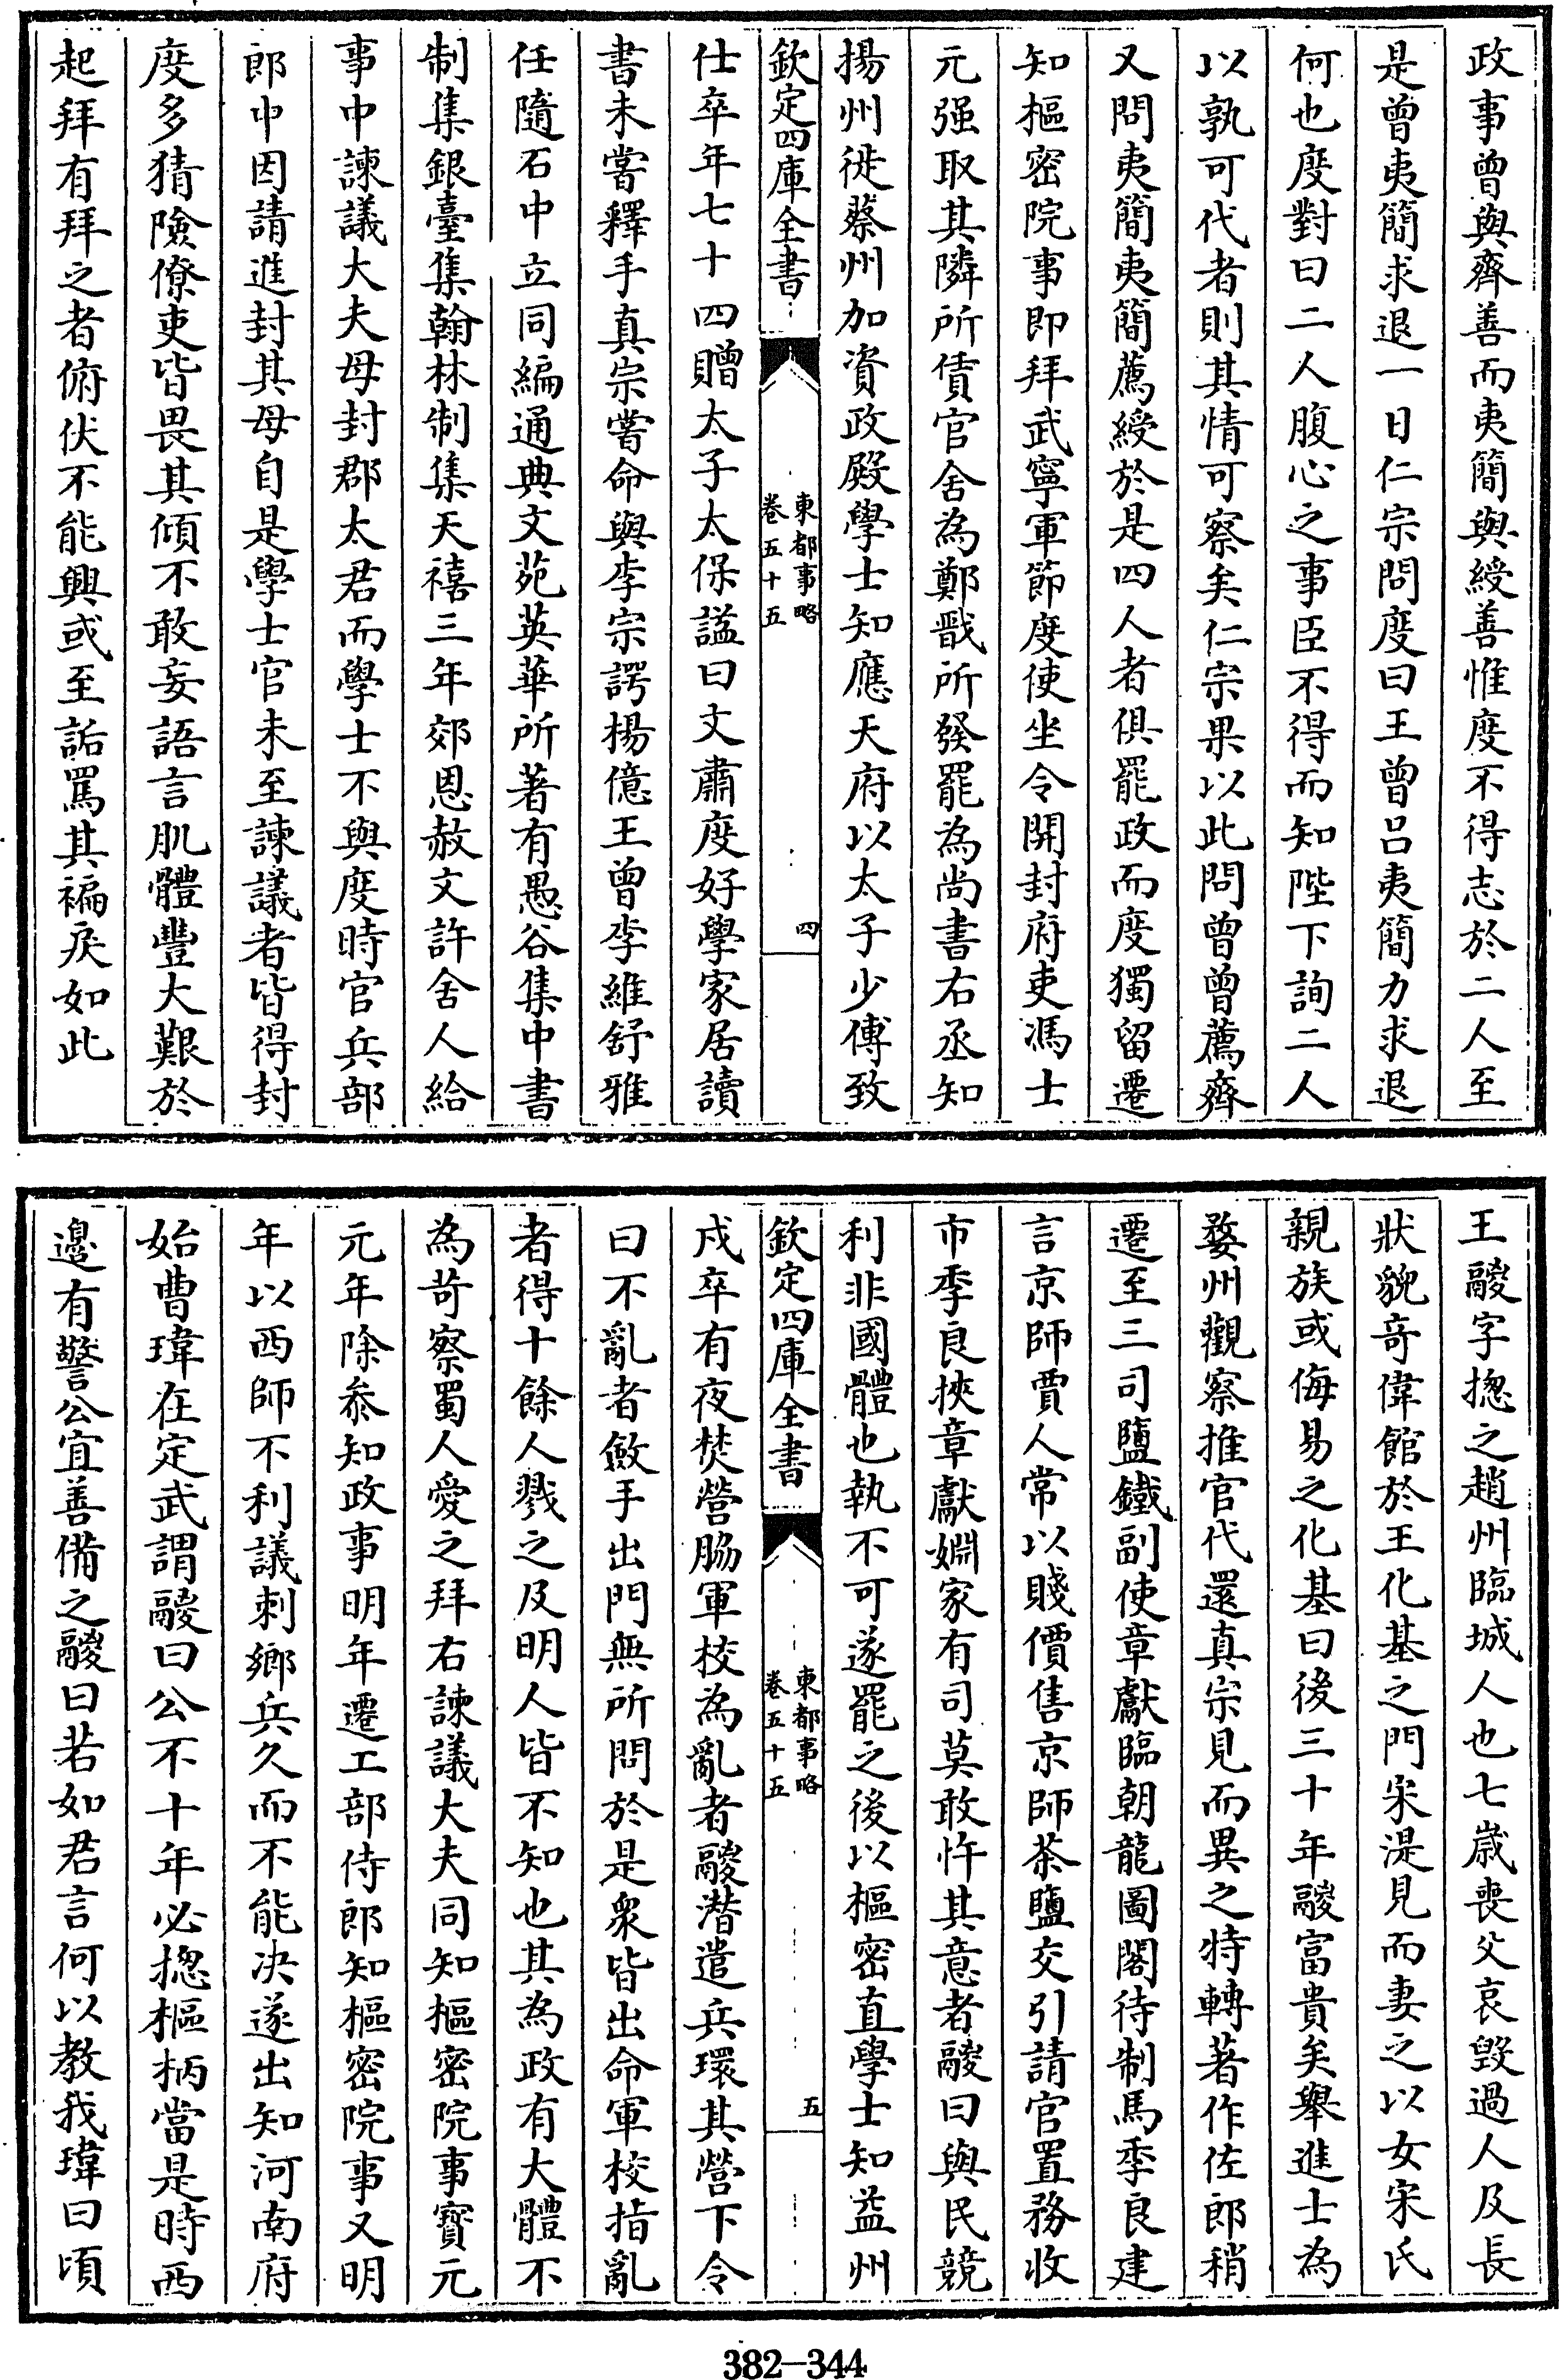 政事曾與齊善而夷簡與綬善惟度不得志於二人至
是曾夷簡求退一日仁宗問度曰王曾呂夷簡力求退
何也度對曰二人腹心之事臣不得而知陛下詢二人
以孰可代者則其情可察矣仁宗果以此問曾曾薦齊
又問夷簡夷簡薦綬於是四人者俱罷政而度獨留遷
知樞密院事即拜武寧軍節度使坐令開封府吏馮士
元强取其隣所債官舍為鄭戩所發罷為尚書右丞知
揚州徙蔡州加資政殿學士知應天府以太子少傅致
欽定四庫全書
東都事略
卷五十五
四
仕卒年七十四贈太子太保諡曰文肅度好學家居讀
書未嘗釋手真宗嘗命與李宗諤楊億王曾李維舒雅
任隨石中立同編通典文苑英華所著有愚谷集中書
制集銀臺集翰林制集天禧三年郊恩赦文許舍人給
事中諫議大夫母封郡太君而學士不與度時官兵部
郎中因請進封其母自是學士官未至諫議者皆得封
度多猜險僚吏皆畏其傾不敢妄語言肌體豐大艱於
起拜有拜之者俯伏不能興或至詬罵其褊戾如此
王鬷字摠之趙州臨城人也七歲喪父哀毀過人及長
狀貌奇偉館於王化基之門宋湜見而妻之以女宋氏
親族或侮易之化基曰後三十年鬷富貴矣舉進士為
婺州觀察推官代還真宗見而異之特轉著作佐郎稍
遷至三司鹽鐵副使章獻臨朝龍圖閣待制馬季良建
言京師賈人常以賤價售京師茶鹽交引請官置務收
市季良挾章獻婣家有司莫敢忤其意者鬷曰與民競
利非國體也執不可遂罷之後以樞密直學士知益州
欽定四庫全書
東都事略
卷五十五
五
戍卒有夜焚營脇軍校為亂者鬷潜遣兵環其營下令
曰不亂者斂手出門無所問於是衆皆出命軍校指亂
者得十餘人戮之及明人皆不知也其為政有大體不
為苛察蜀人愛之拜右諫議大夫同知樞密院事寶元
元年除叅知政事明年遷工部侍郎知樞密院事又明
年以西師不利議刺鄉兵久而不能决遂出知河南府
始曹瑋在定武謂鬷曰公不十年必摠樞柄當是時西
邊有警公宜善備之鬷曰若如君言何以教我瑋曰頃
382-344